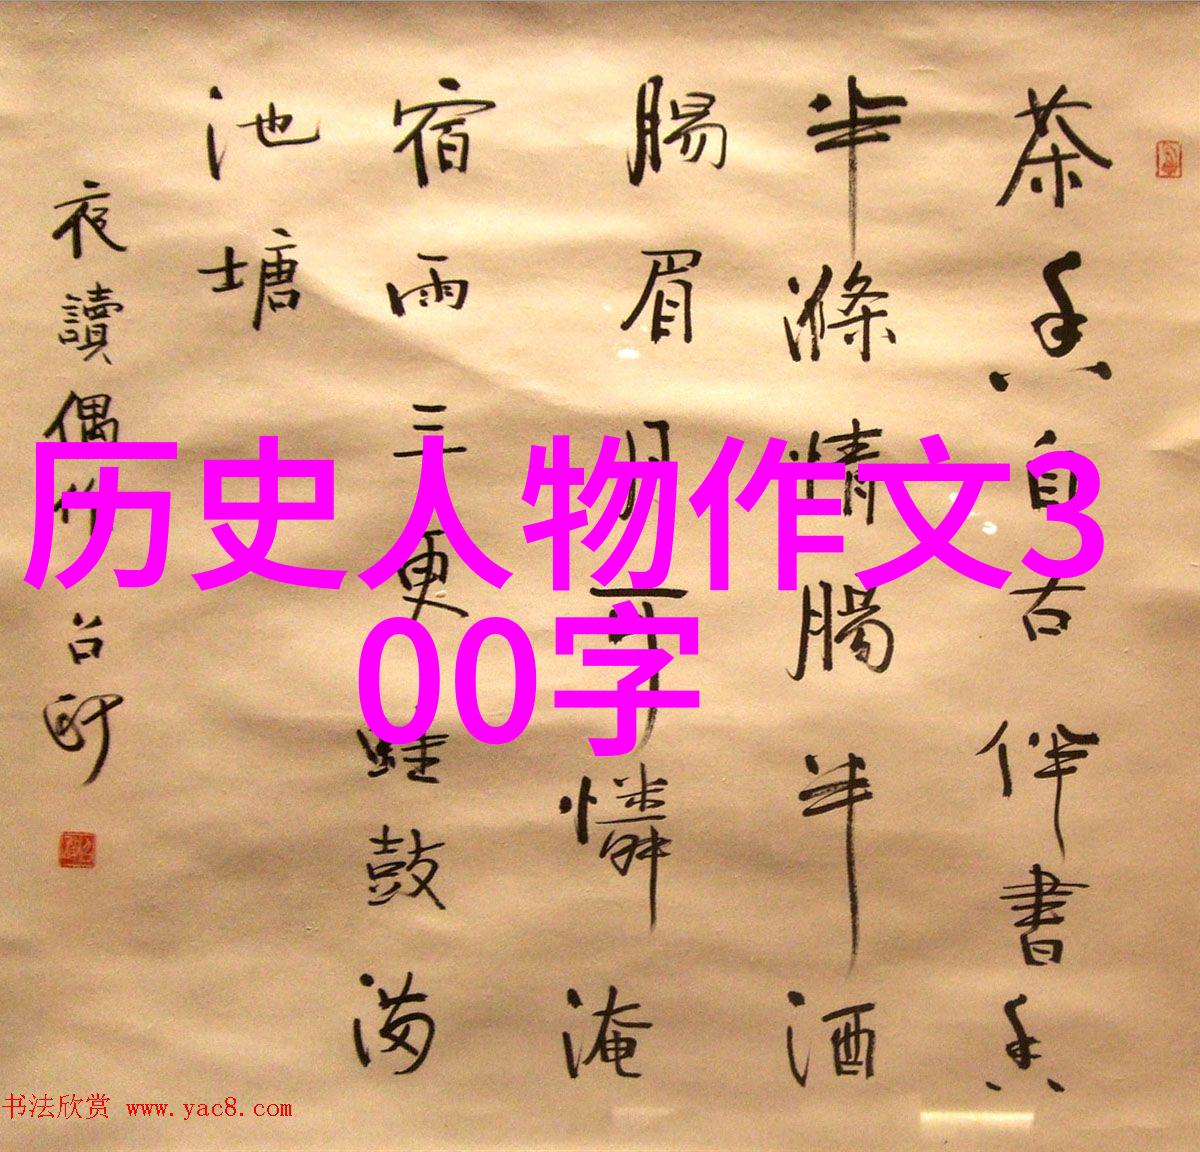 茶香自古伴書香
半滌情腸半酒
腸眉月可憐淹
宿雨三更蛙鼓滿
池塘
夜讀偶作 台
历史人物作文3
00字
书法欣赏 www.yac8.com